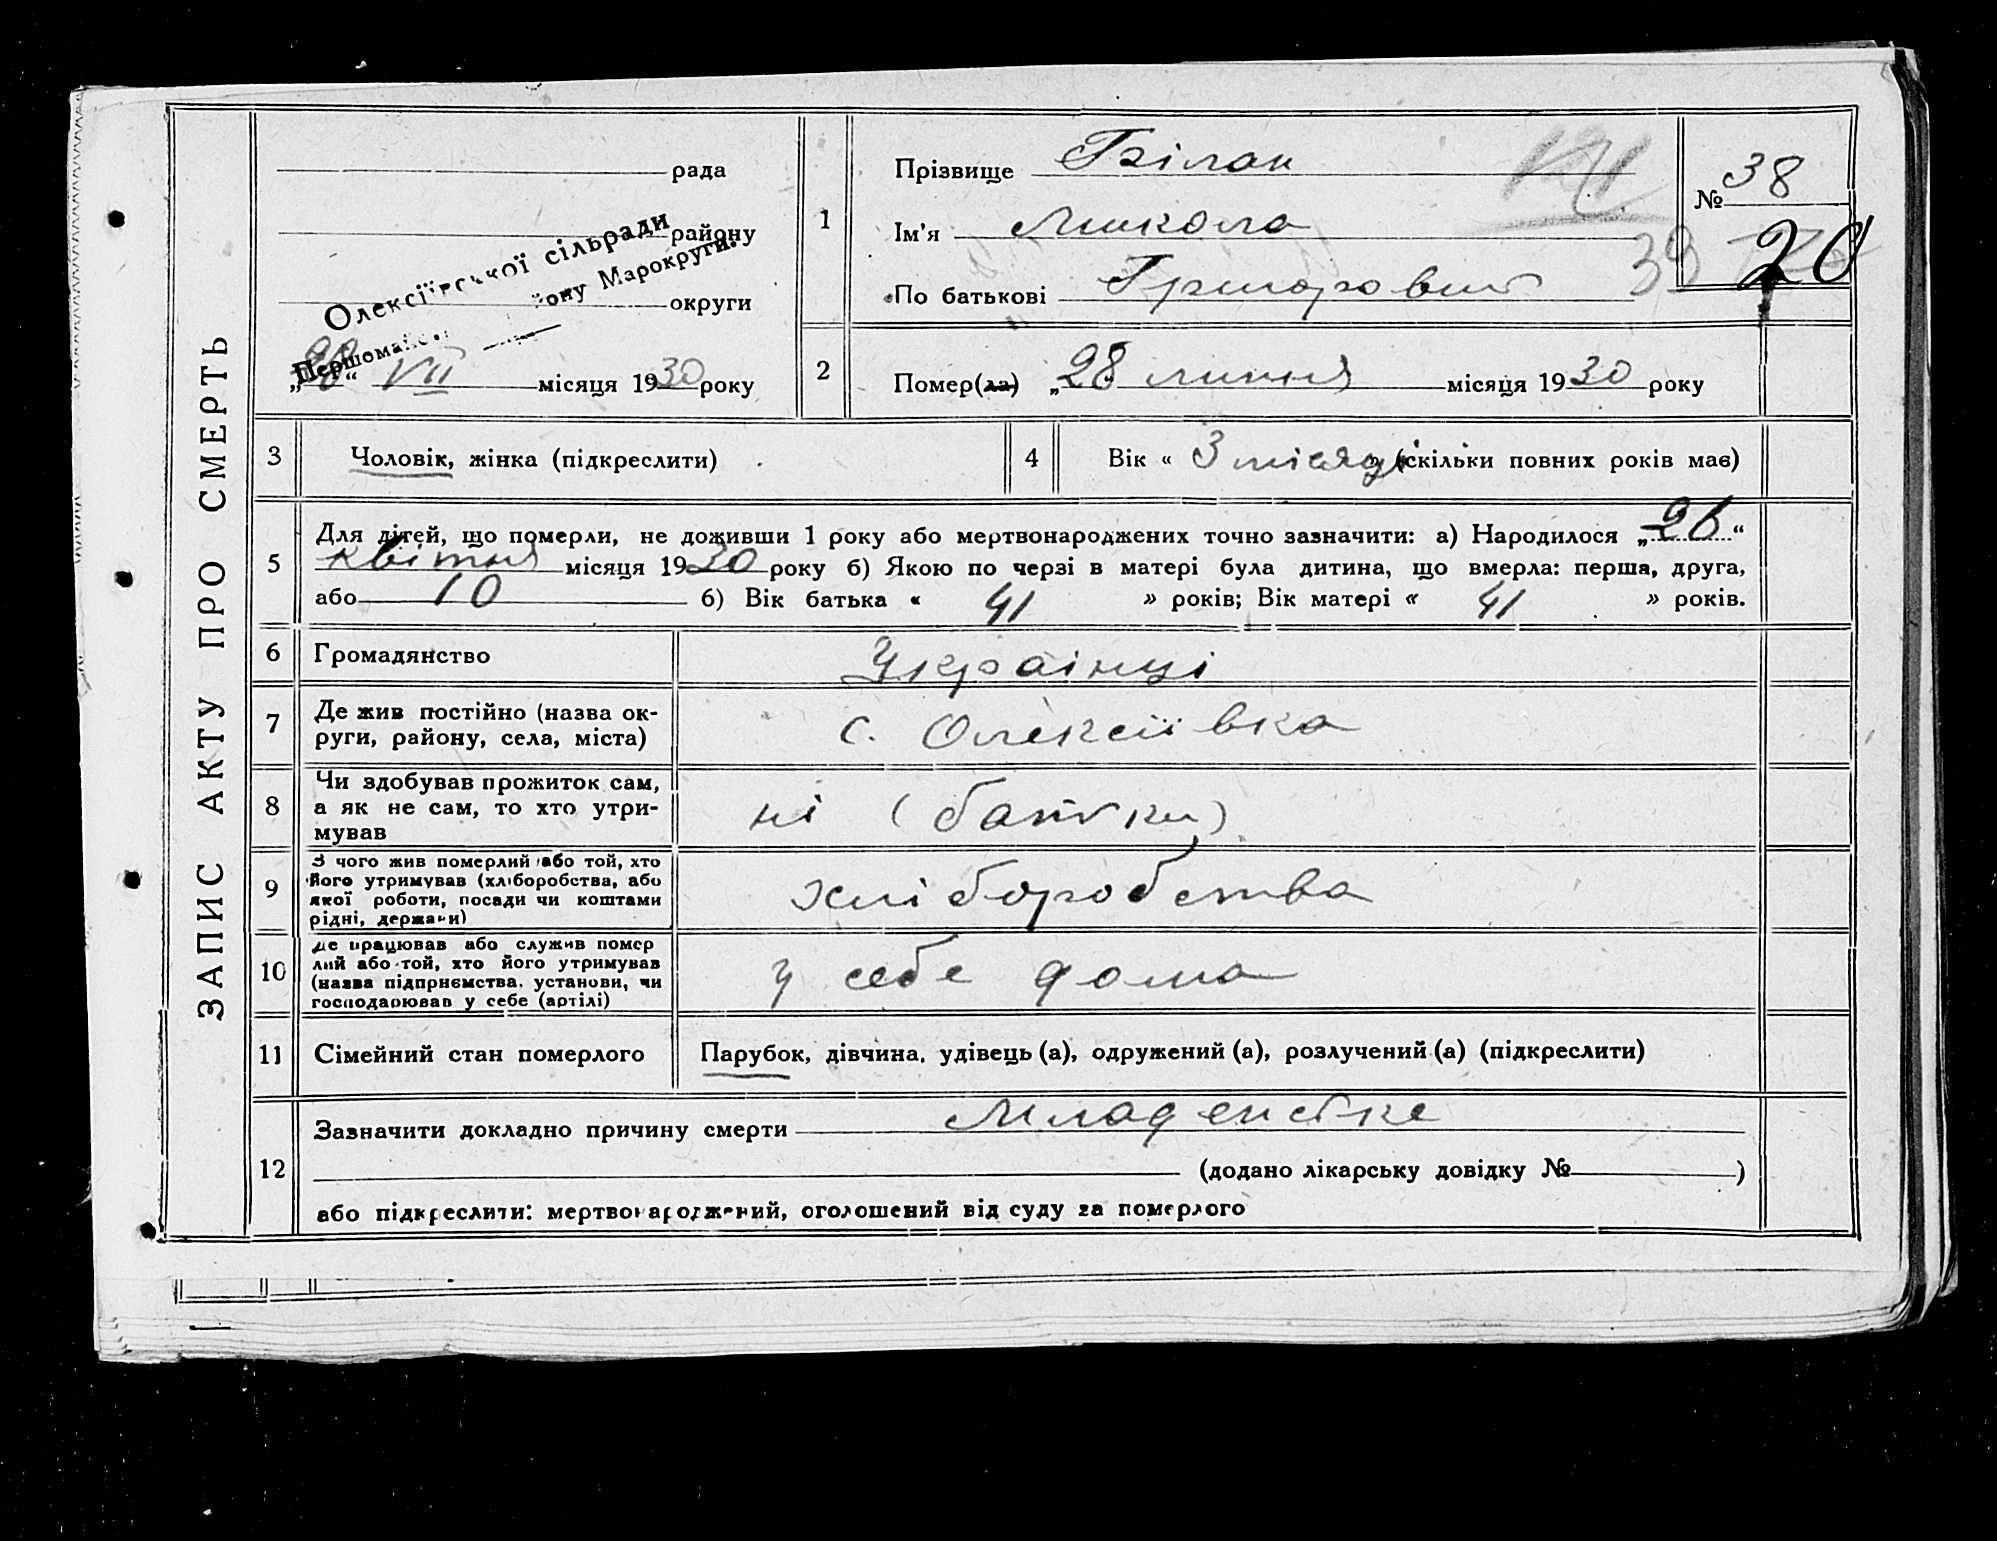 ЗАПИС АКТУ ПРО СМЕРТЬ
рада
району
округи
Олексіївської сільради
Першомайс. йону Марокруги.
„28“ VII місяця 1930 року
1
Прізвище Білан
Ім'я Микола
По батькові Григорович
№ 38
39
20
2
Помер(ла) „28 липня місяця 1930 року
3
Чоловік, жінка (підкреслити)
4
Вік « 3 місяц» (скільки повних років має)
5
Для дітей, що померли, не доживши 1 року або мертвонароджених точно зазначити: а) Народилося „26“
квітня місяця 1930 року б) Якою по черзі в матері була дитина, що вмерла: перша, друга,
або 10 б) Вік батька « 41 » років; Вік матері « 41 » років.
6
Громадянство
Українці
7
Де жив постійно (назва ок-
руги, району, села, міста)
с. Олексіївка
8
Чи здобував прожиток сам,
а як не сам, то хто утри-
мував
ні (батьки)
9
З чого жив померлий або той, хто
його утримував (хліборобства, або
якої роботи, посади чи коштами
рідні, держави)
хліборобства
10
Де працював або служив помер
лий або той, хто його утримував
(назва підприємства, установи, чи
господарював у себе (артілі)
у себе дома
11
Сімейний стан померлого
Парубок, дівчина, удівець (а), одружений (а), розлучений (а) (підкреслити)
12
Зазначити докладно причину смерти Младенске
(додано лікарську довідку № )
або підкреслити: мертвонароджений, оголошений від суду за померлого